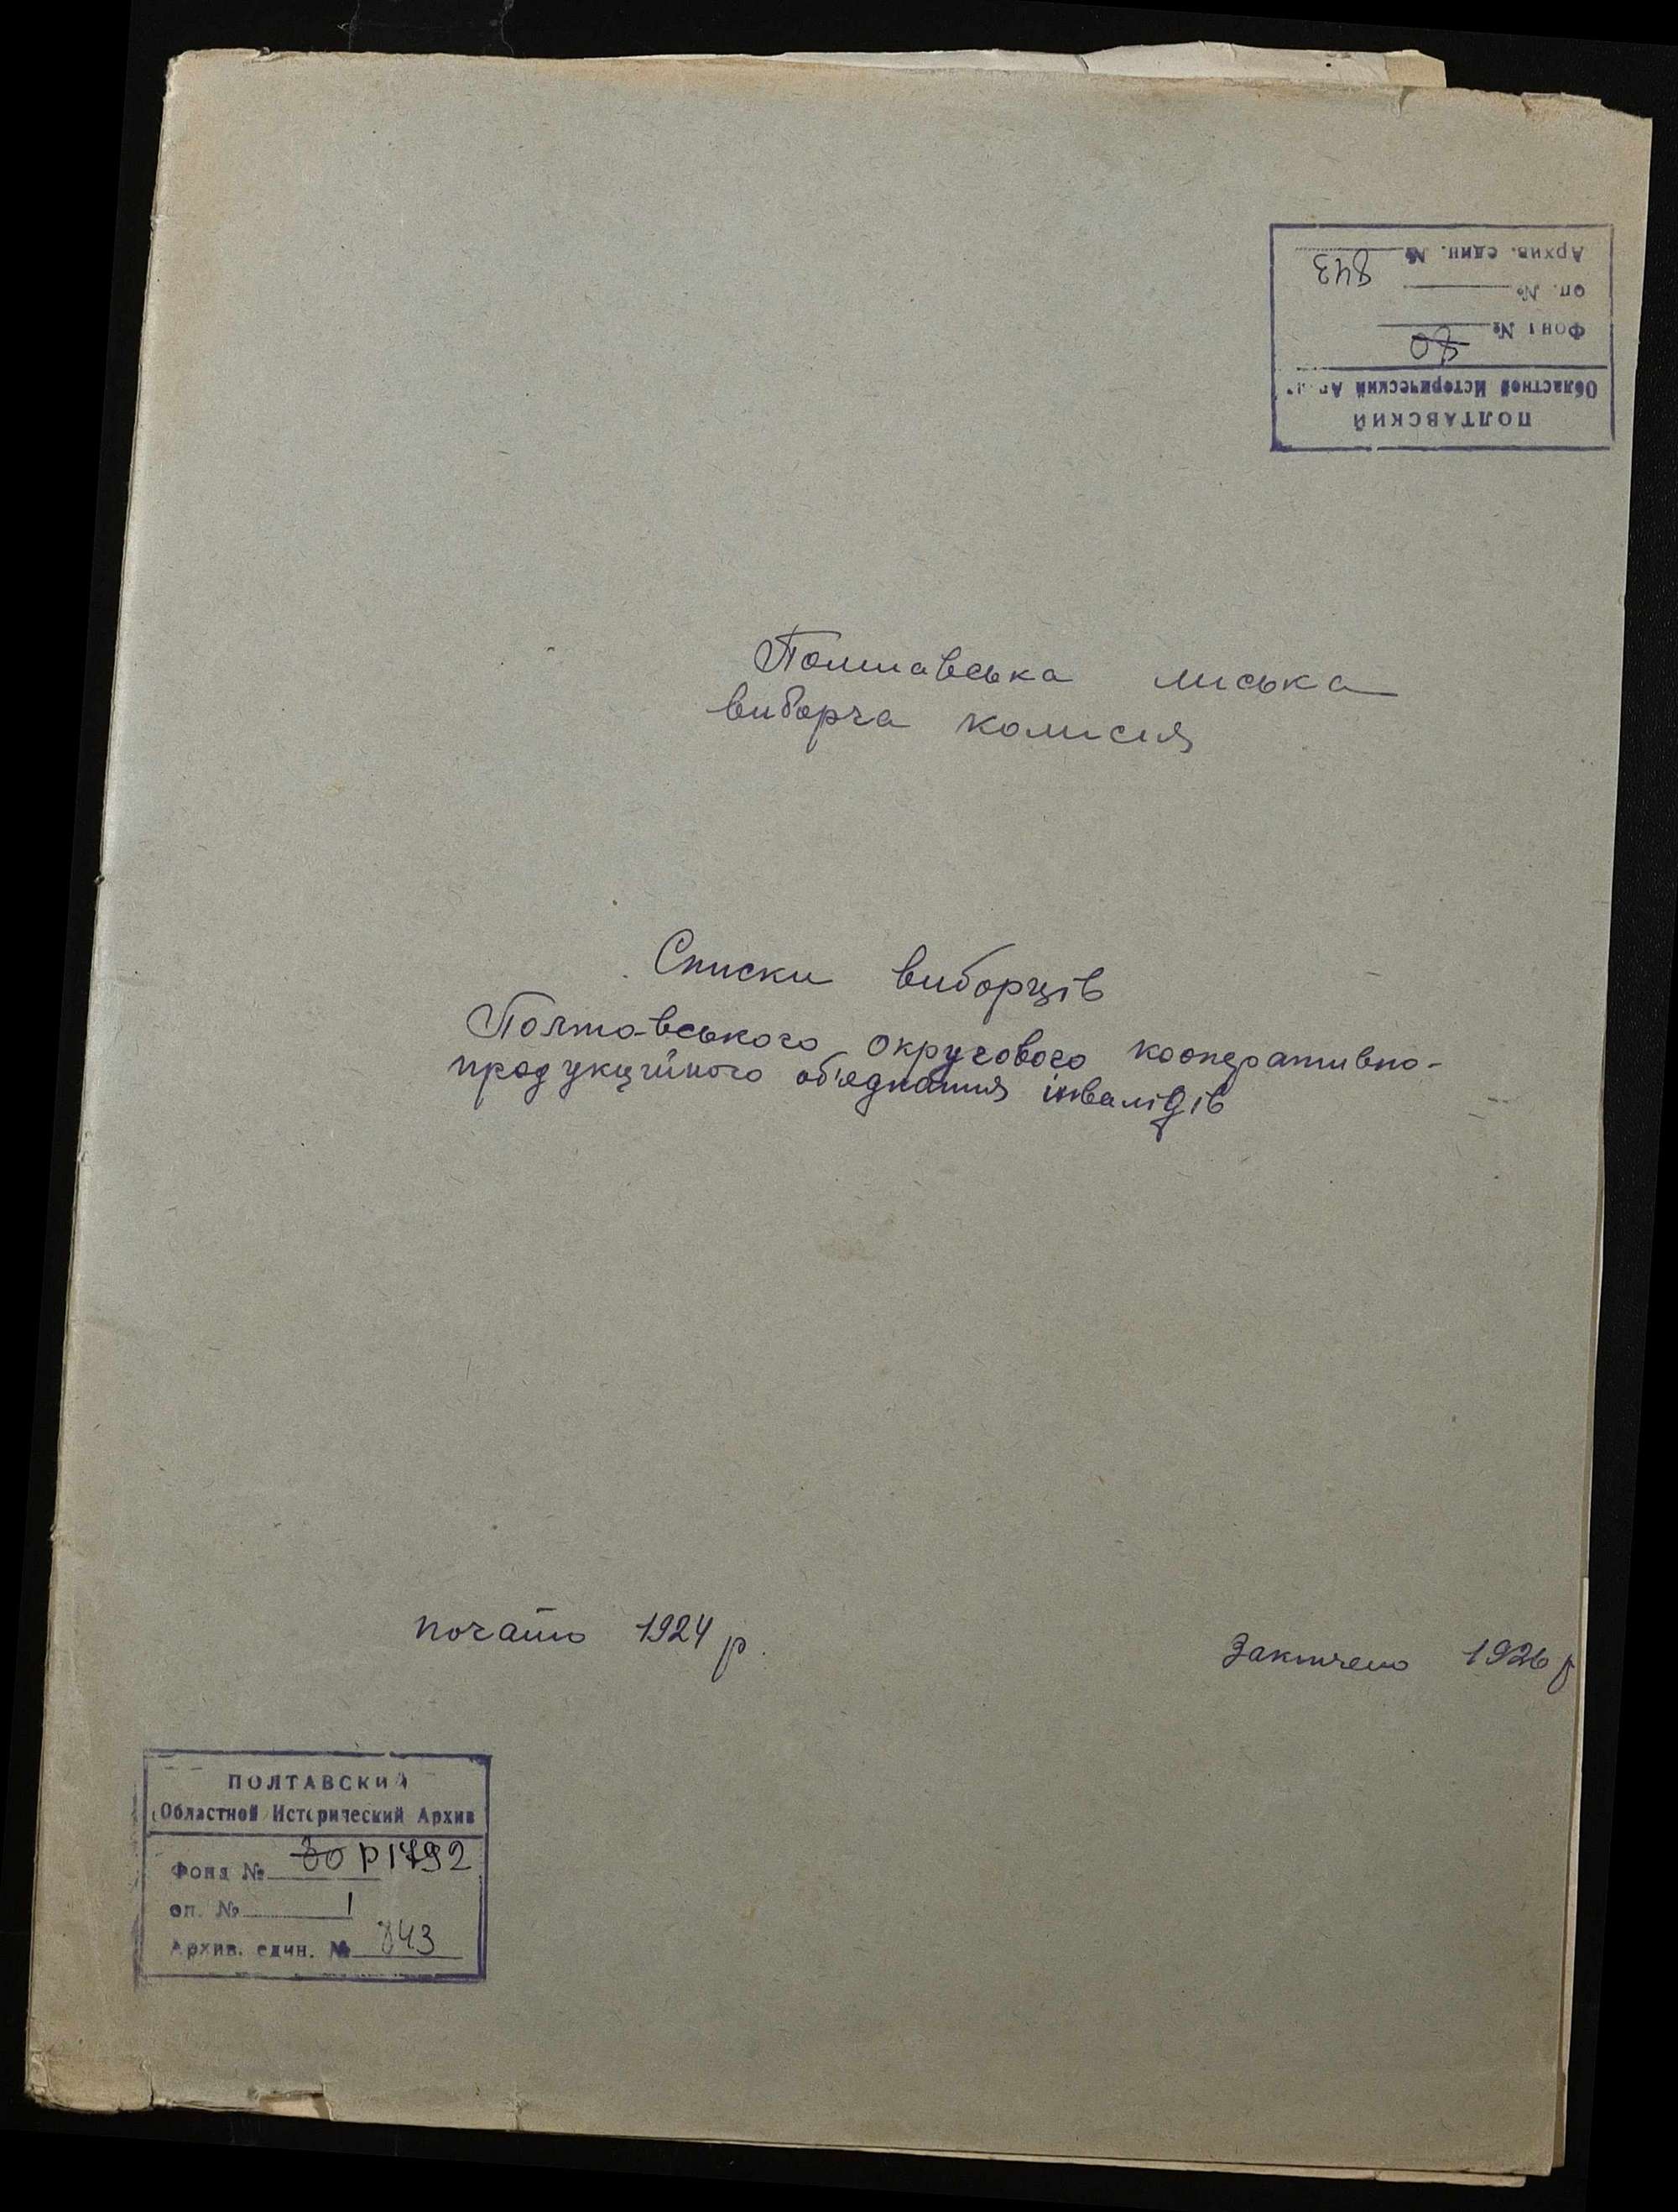 ПОЛТАВСКИЙ
Областной Исторический
Фонд № 80
оп. №
Архив. един. № 843
Полтавська міська
виборча комісія
Списки виборців
Полтавського округового кооперативно-
продукційного об'єднання інвалідів
почато 1924 р.
Закінчено 1926 р
ПОЛТАВСКИЙ
Областной Исторический Архив
Фонд № 80 Р1792
оп. № 1
Архив. един. № 843